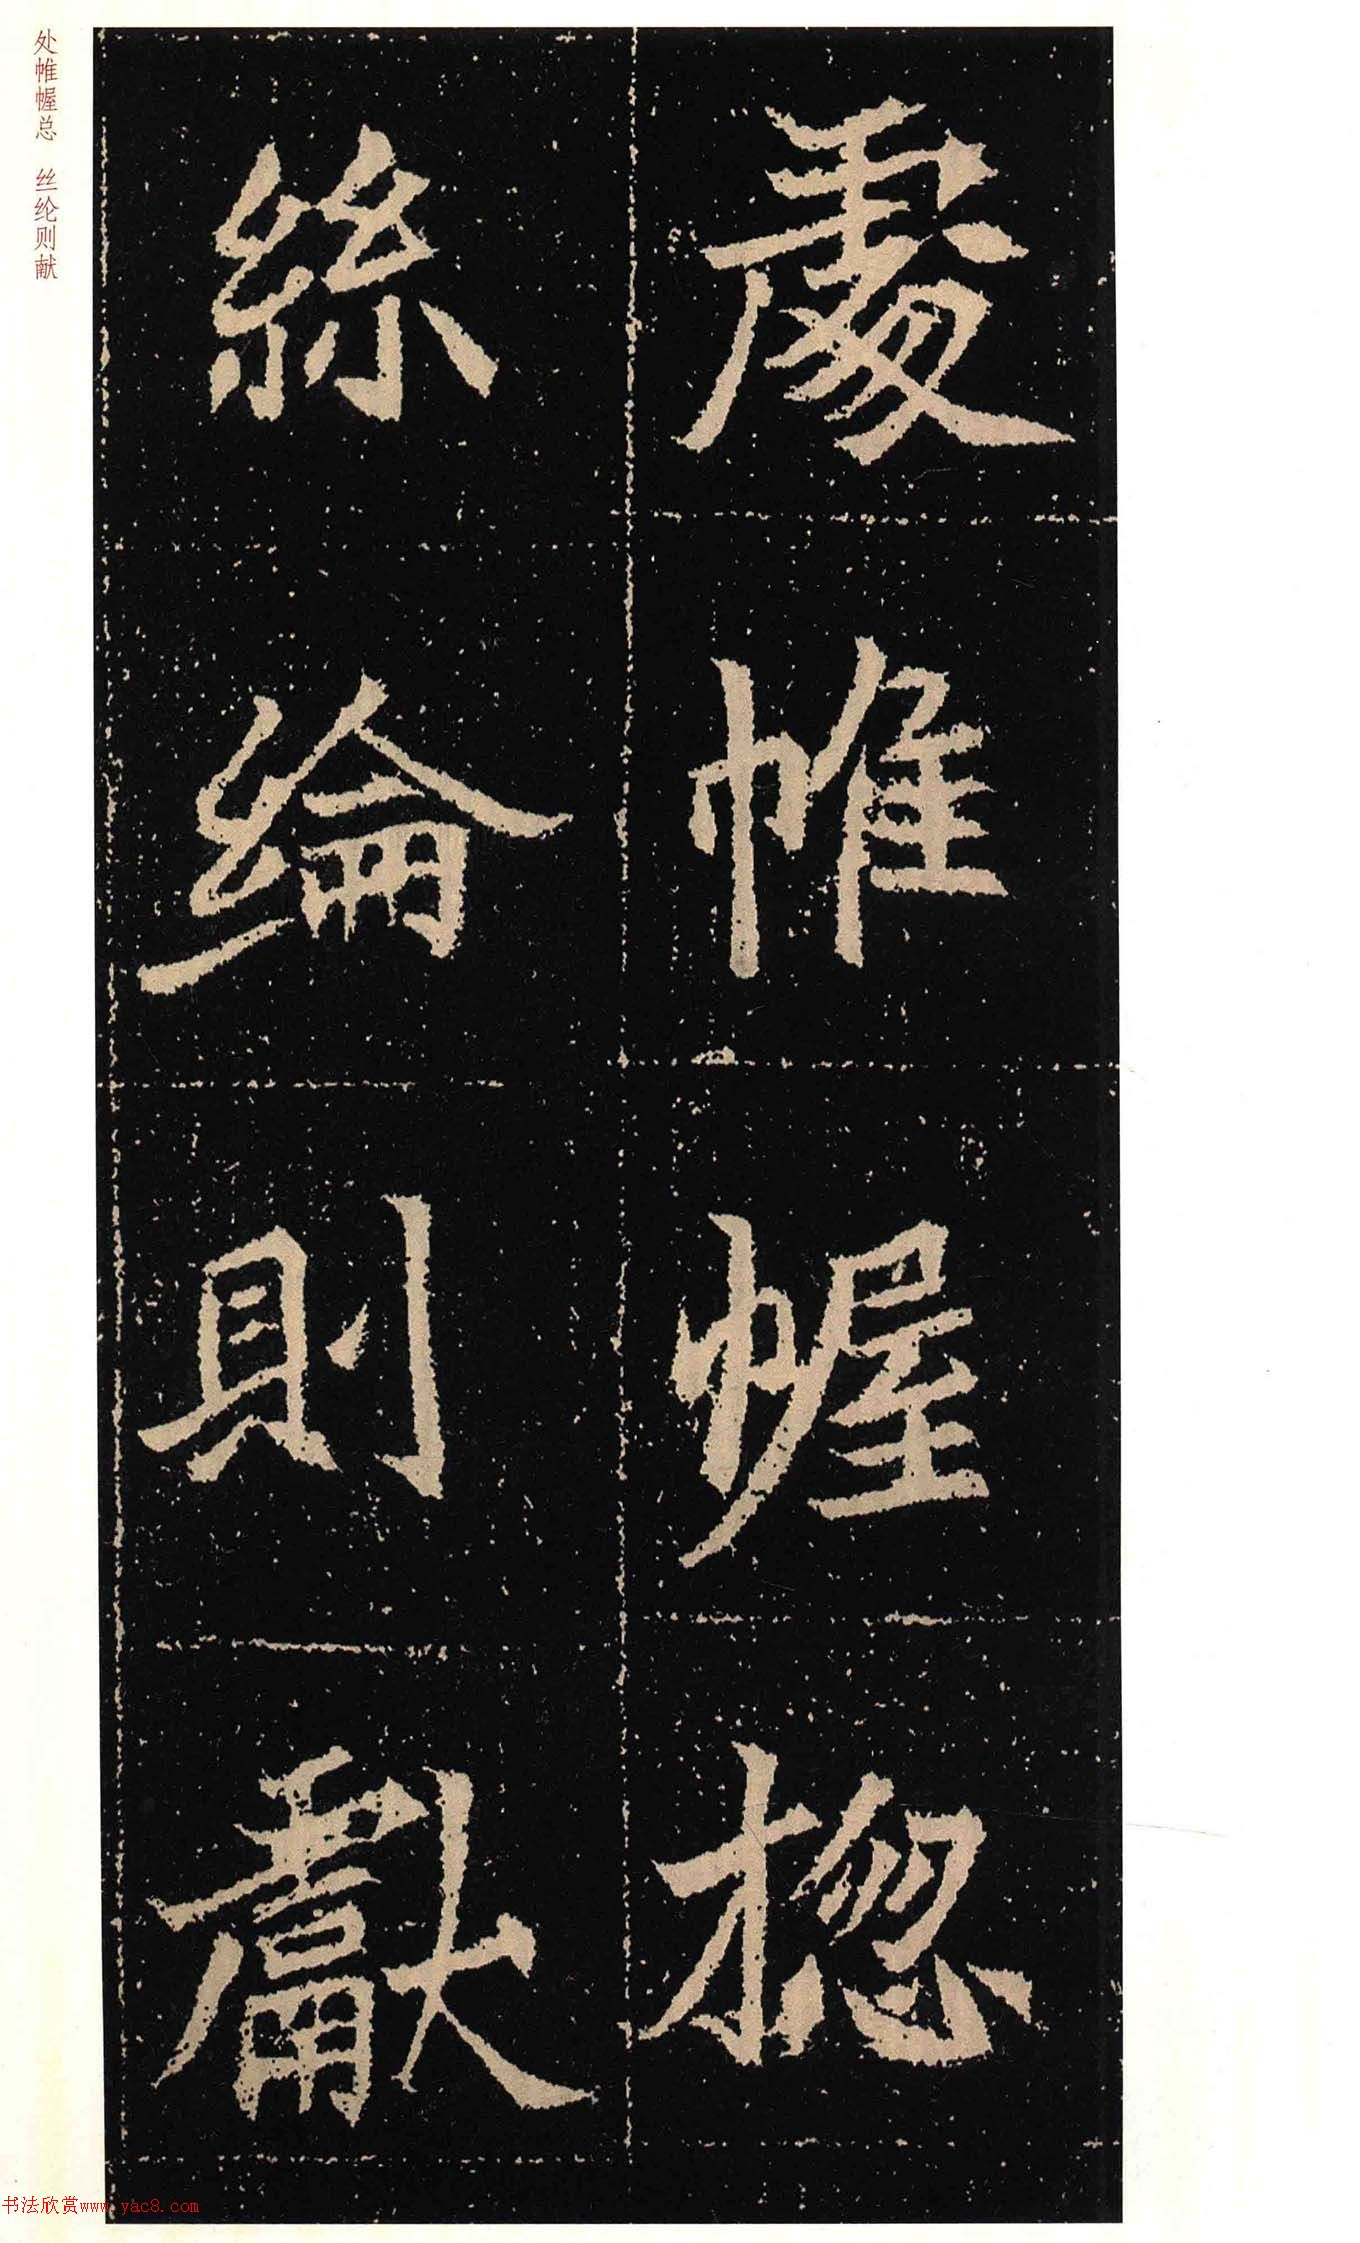 處帷幄揔
絲綸則獻
处帷幄总 丝纶则献
书法欣赏www.yac8.com